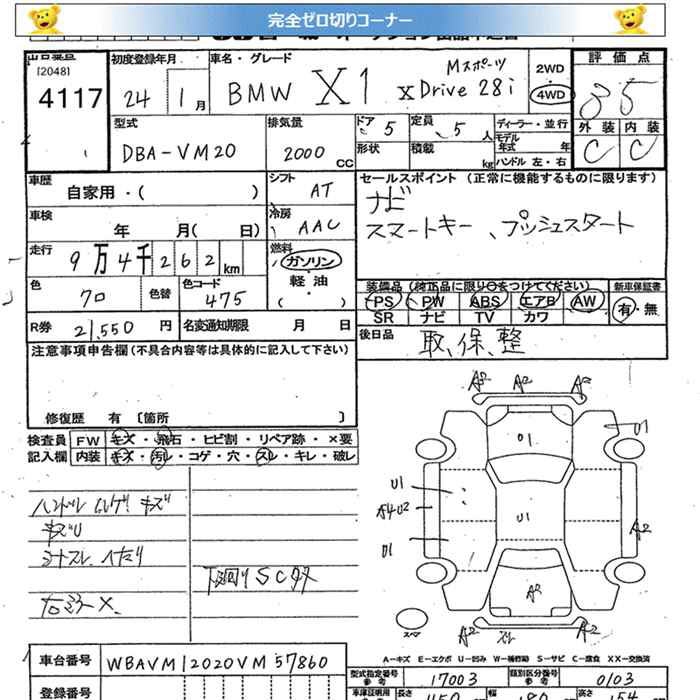 完全ゼロ切りコーナー
出品番号 初度登録年月 車名・グレード 評価点
[2048]
4117
24 1月 BMW X1 Mスポーツ xDrive 28i 2WD 4WD 8 5
外装 内装
C C
型式 排気量 ドア 定員 ディーラー・並行
DBA-VM20 2000cc 5 5人 モデル年式 年
形状 積載 kg ハンドル 左・右
車歴 シフト セールスポイント (正常に機能するものに限ります)
自家用・( ) AT ナビ
車検 冷房 スマートキー、プッシュスタート
年 月( 日) AAC
走行 燃料
9万4千262km ガソリン
軽油・( )
色 色替 色コード 装備品(純正品に限り○をつけてください) 新車保証書
クロ 475 PS PW ABS エアB AW 有・無
SR ナビ TV カワ
R券 21,550円 名変通知期限 月 日 後日品 取、保、整
注意事項申告欄(不具合内容等は具体的に記入して下さい)
修復歴 有 [箇所 ]
検査員 FW キズ・飛石・ヒビ割・リペア跡・×要
記入欄 内装 キズ・汚レ・コゲ・穴・スレ・キレ・破レ
ハンドル シルゲ キズ
キズU
シートスレ、ヘタリ
下回りSCサ
右ミラーX
A2 A2 A2
U1
U1
U1
A4U2
U1
U1
A2
A2
A2 スレ A2
スペア
A-キズ E-エクボ U-凹み W-補修跡 S-サビ C-腐食 XX-交換済
車台番号 WBAVM12020VM57860
型式指定番号 参考 17003 類別区分番号 参考 0103
登録番号
車庫証明用 参考 長さ 450 幅 180 高さ 154